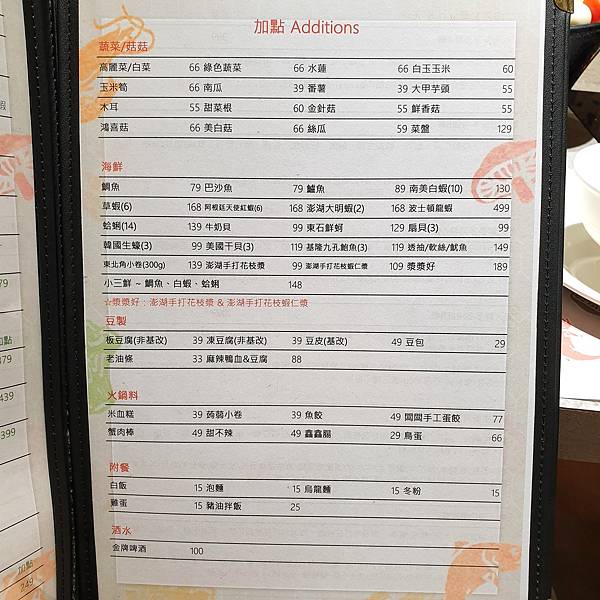 加點 Additions
蔬菜/菇菇
高麗菜/白菜 66 綠色蔬菜 66 水蓮 66 白玉玉米 60
玉米筍 66 南瓜 39 番薯 39 大甲芋頭 55
木耳 55 甜菜根 60 金針菇 55 鮮香菇 55
鴻喜菇 66 美白菇 66 絲瓜 59 菜盤 129
海鮮
鯛魚 79 巴沙魚 79 鱸魚 89 南美白蝦(10) 130
草蝦(6) 168 阿根廷天使紅蝦(6) 168 澎湖大明蝦(2) 168 波士頓龍蝦 499
蛤蜊(14) 139 牛奶貝 99 東石鮮蚵 129 扇貝(3) 99
韓國生蠔(3) 99 美國干貝(3) 119 基隆九孔鮑魚(3) 119 透抽/軟絲/魷魚 149
東北角小卷(300g) 139 澎湖手打花枝漿 99 澎湖手打花枝蝦仁漿 109 漿漿好 189
小三鮮 ~ 鯛魚、白蝦、蛤蜊 148
☆漿漿好：澎湖手打花枝漿 & 澎湖手打花枝蝦仁漿
豆製
板豆腐(非基改) 39 凍豆腐(非基改) 39 豆皮(基改) 49 豆包 29
老油條 33 麻辣鴨血&豆腐 88
火鍋料
米血糕 39 蒟蒻小卷 39 魚餃 49 闆闆手工蛋餃 77
蟹肉棒 49 甜不辣 49 鑫鑫腸 29 鳥蛋 66
附餐
白飯 15 泡麵 15 烏龍麵 15 冬粉 15
雞蛋 15 豬油拌飯 25
酒水
金牌啤酒 100
蝦
79
加點
379
439
399
加點
249